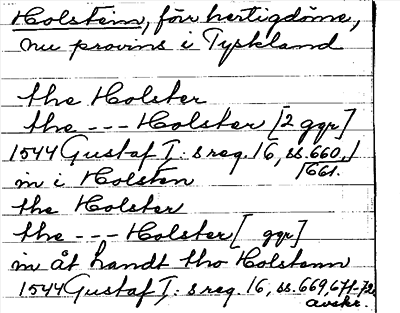 Holstein, förr hertigdöme,
nu provins i Tyskland
the Holster
the --- Holster [2 ggr]
1544 Gustaf I: s reg. 16, ss. 660, /
/661.
in i Holsten
the Holster
the --- Holster [ ggr]
in åt handt tho Holstenn
1544 Gustaf I: s reg. 16, ss. 669, 671-72,
avskr.